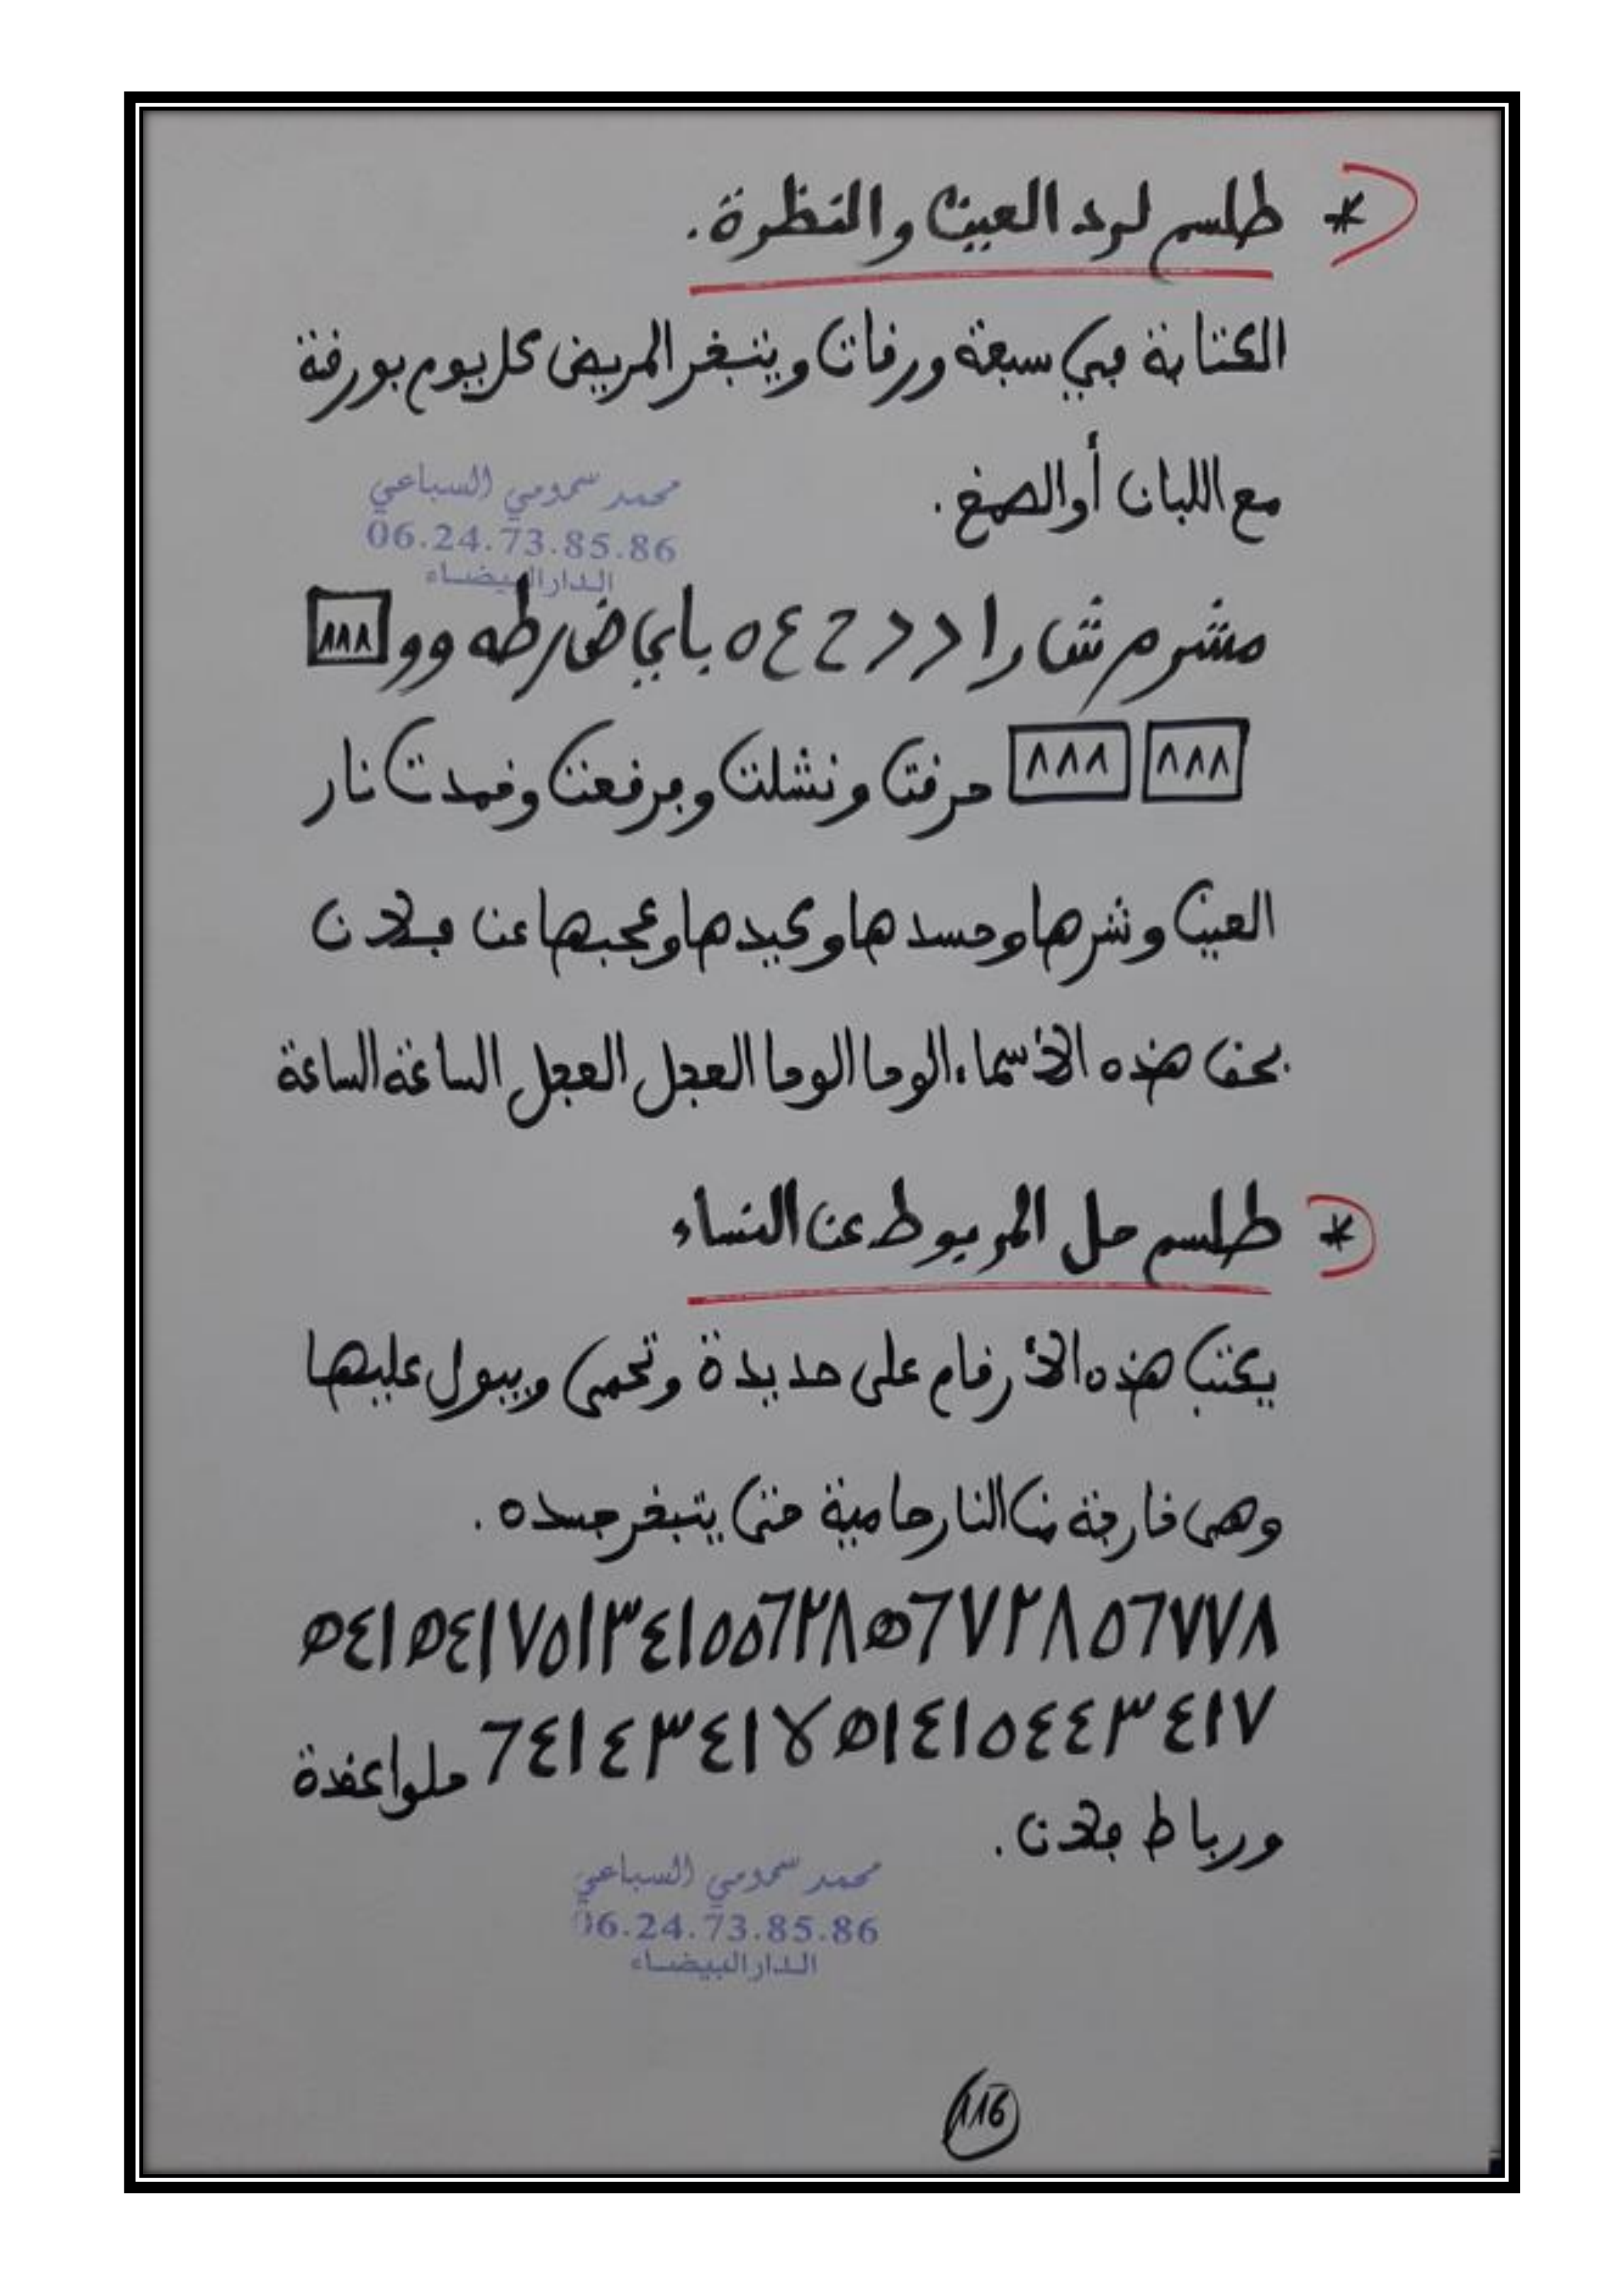 * طلسم لرد العين والنظرة.
الكتابة في سبعة ورقات ويتبخر المريض كل يوم بورقة
مع اللبان أو الصمغ.
محمد سمومي السباعي
06.24.73.85.86
الدار البيضاء
٨٨٨
٨٨٨ ٨٨٨ حرقت ونشلت وبرقعت وخمدت نار
العين وشرها وحسدها وكيدها وعجبها عن فلان
بحق هذه الأسماء الوحا الوحا العجل العجل الساعة الساعة
* طلسم حل المربوط عن النساء
يكتب هذه الأرقام على حديدة وتحمى ويبول عليها
وهي خارجة من النار حامية حتى يتبخر جسده.
حلوا عقدة
ورباط فلان.
محمد سمومي السباعي
06.24.73.85.86
الدار البيضاء
116